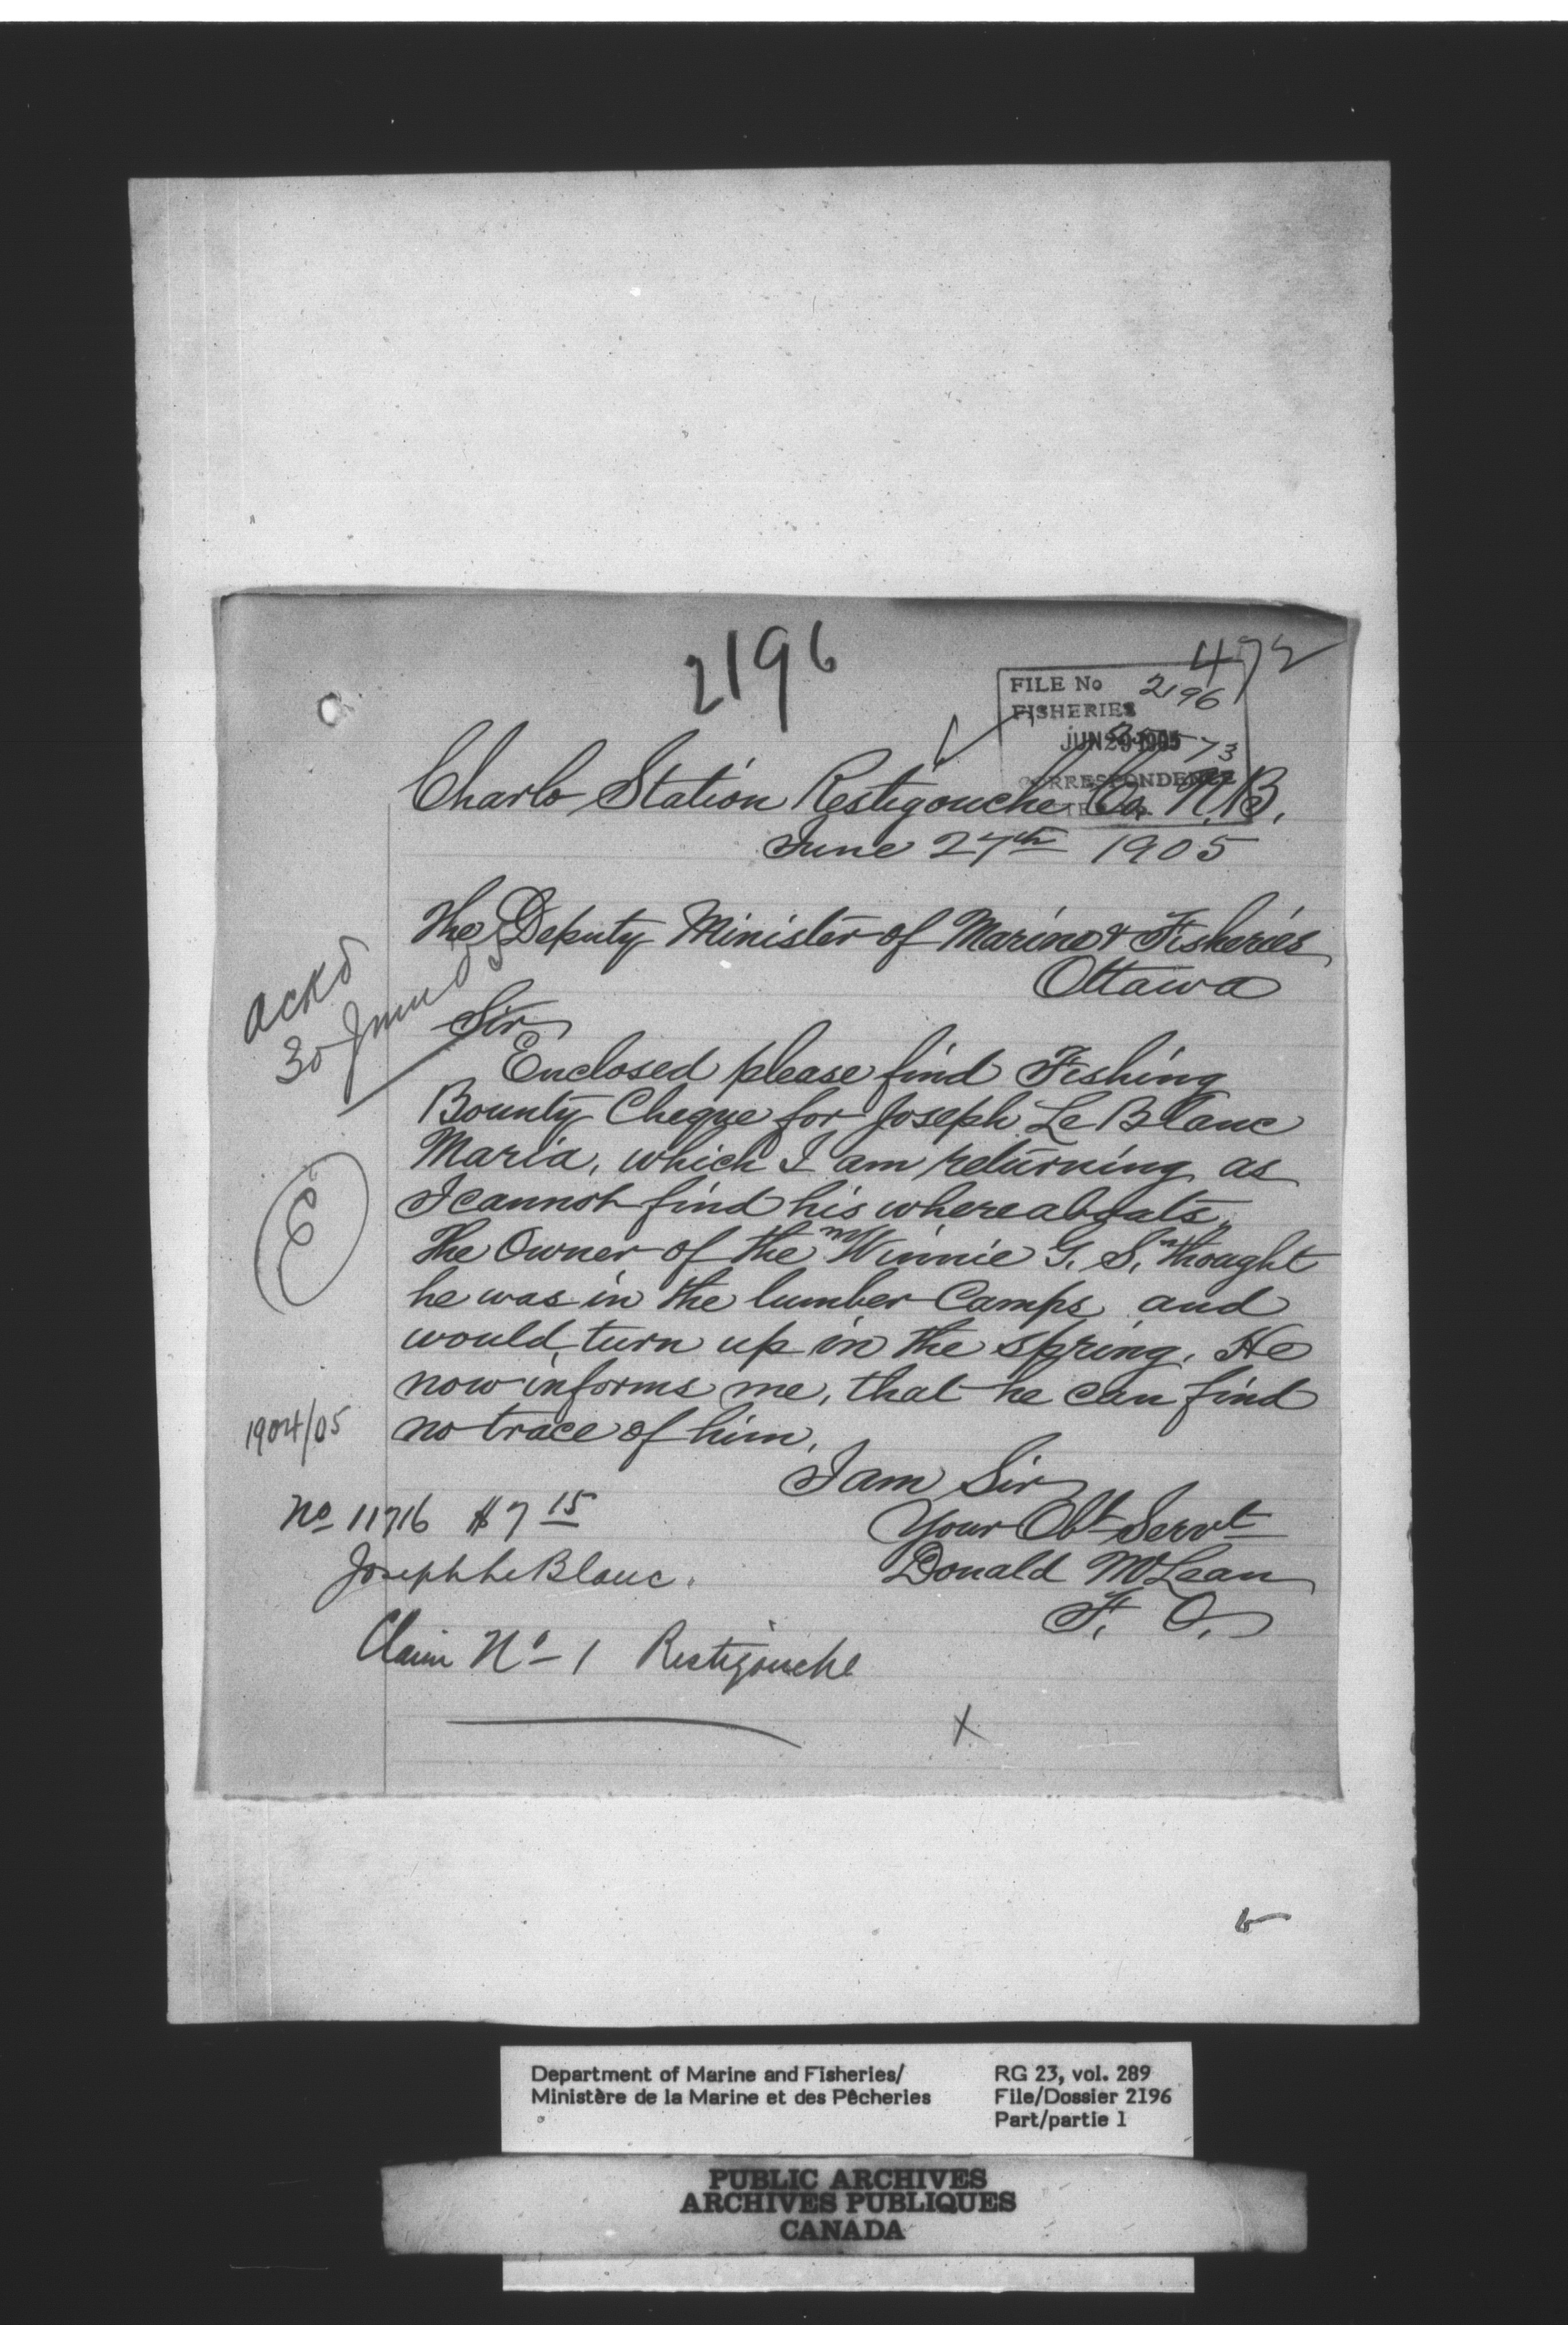 2196
472
FILE No 2196
FISHERIES
JUN 29 1905
CORRESPONDENCE
Charlo Station Restigouche Co. N.B.
June 27th 1905
The Deputy Minister of Marine & Fisheries
Ottawa
Ackd
30 June 05
Sir
Enclosed please find Fishing
Bounty Cheque for Joseph Le Blanc
Maria, which I am returning as
I cannot find his whereabouts.
The Owner of the "Winnie G. S." thought
he was in the lumber Camps and
would turn up in the spring. He
now informs me, that he can find
no trace of him.
E
1904/05
I am Sir
Your Obt Servt
Donald McLean
F. O.
No 11716 $7 15
Joseph Le Blanc.
Claim No 1 Restigouche
X
Department of Marine and Fisheries/
Ministère de la Marine et des Pêcheries
RG 23, vol. 289
File/Dossier 2196
Part/partie 1
PUBLIC ARCHIVES
ARCHIVES PUBLIQUES
CANADA